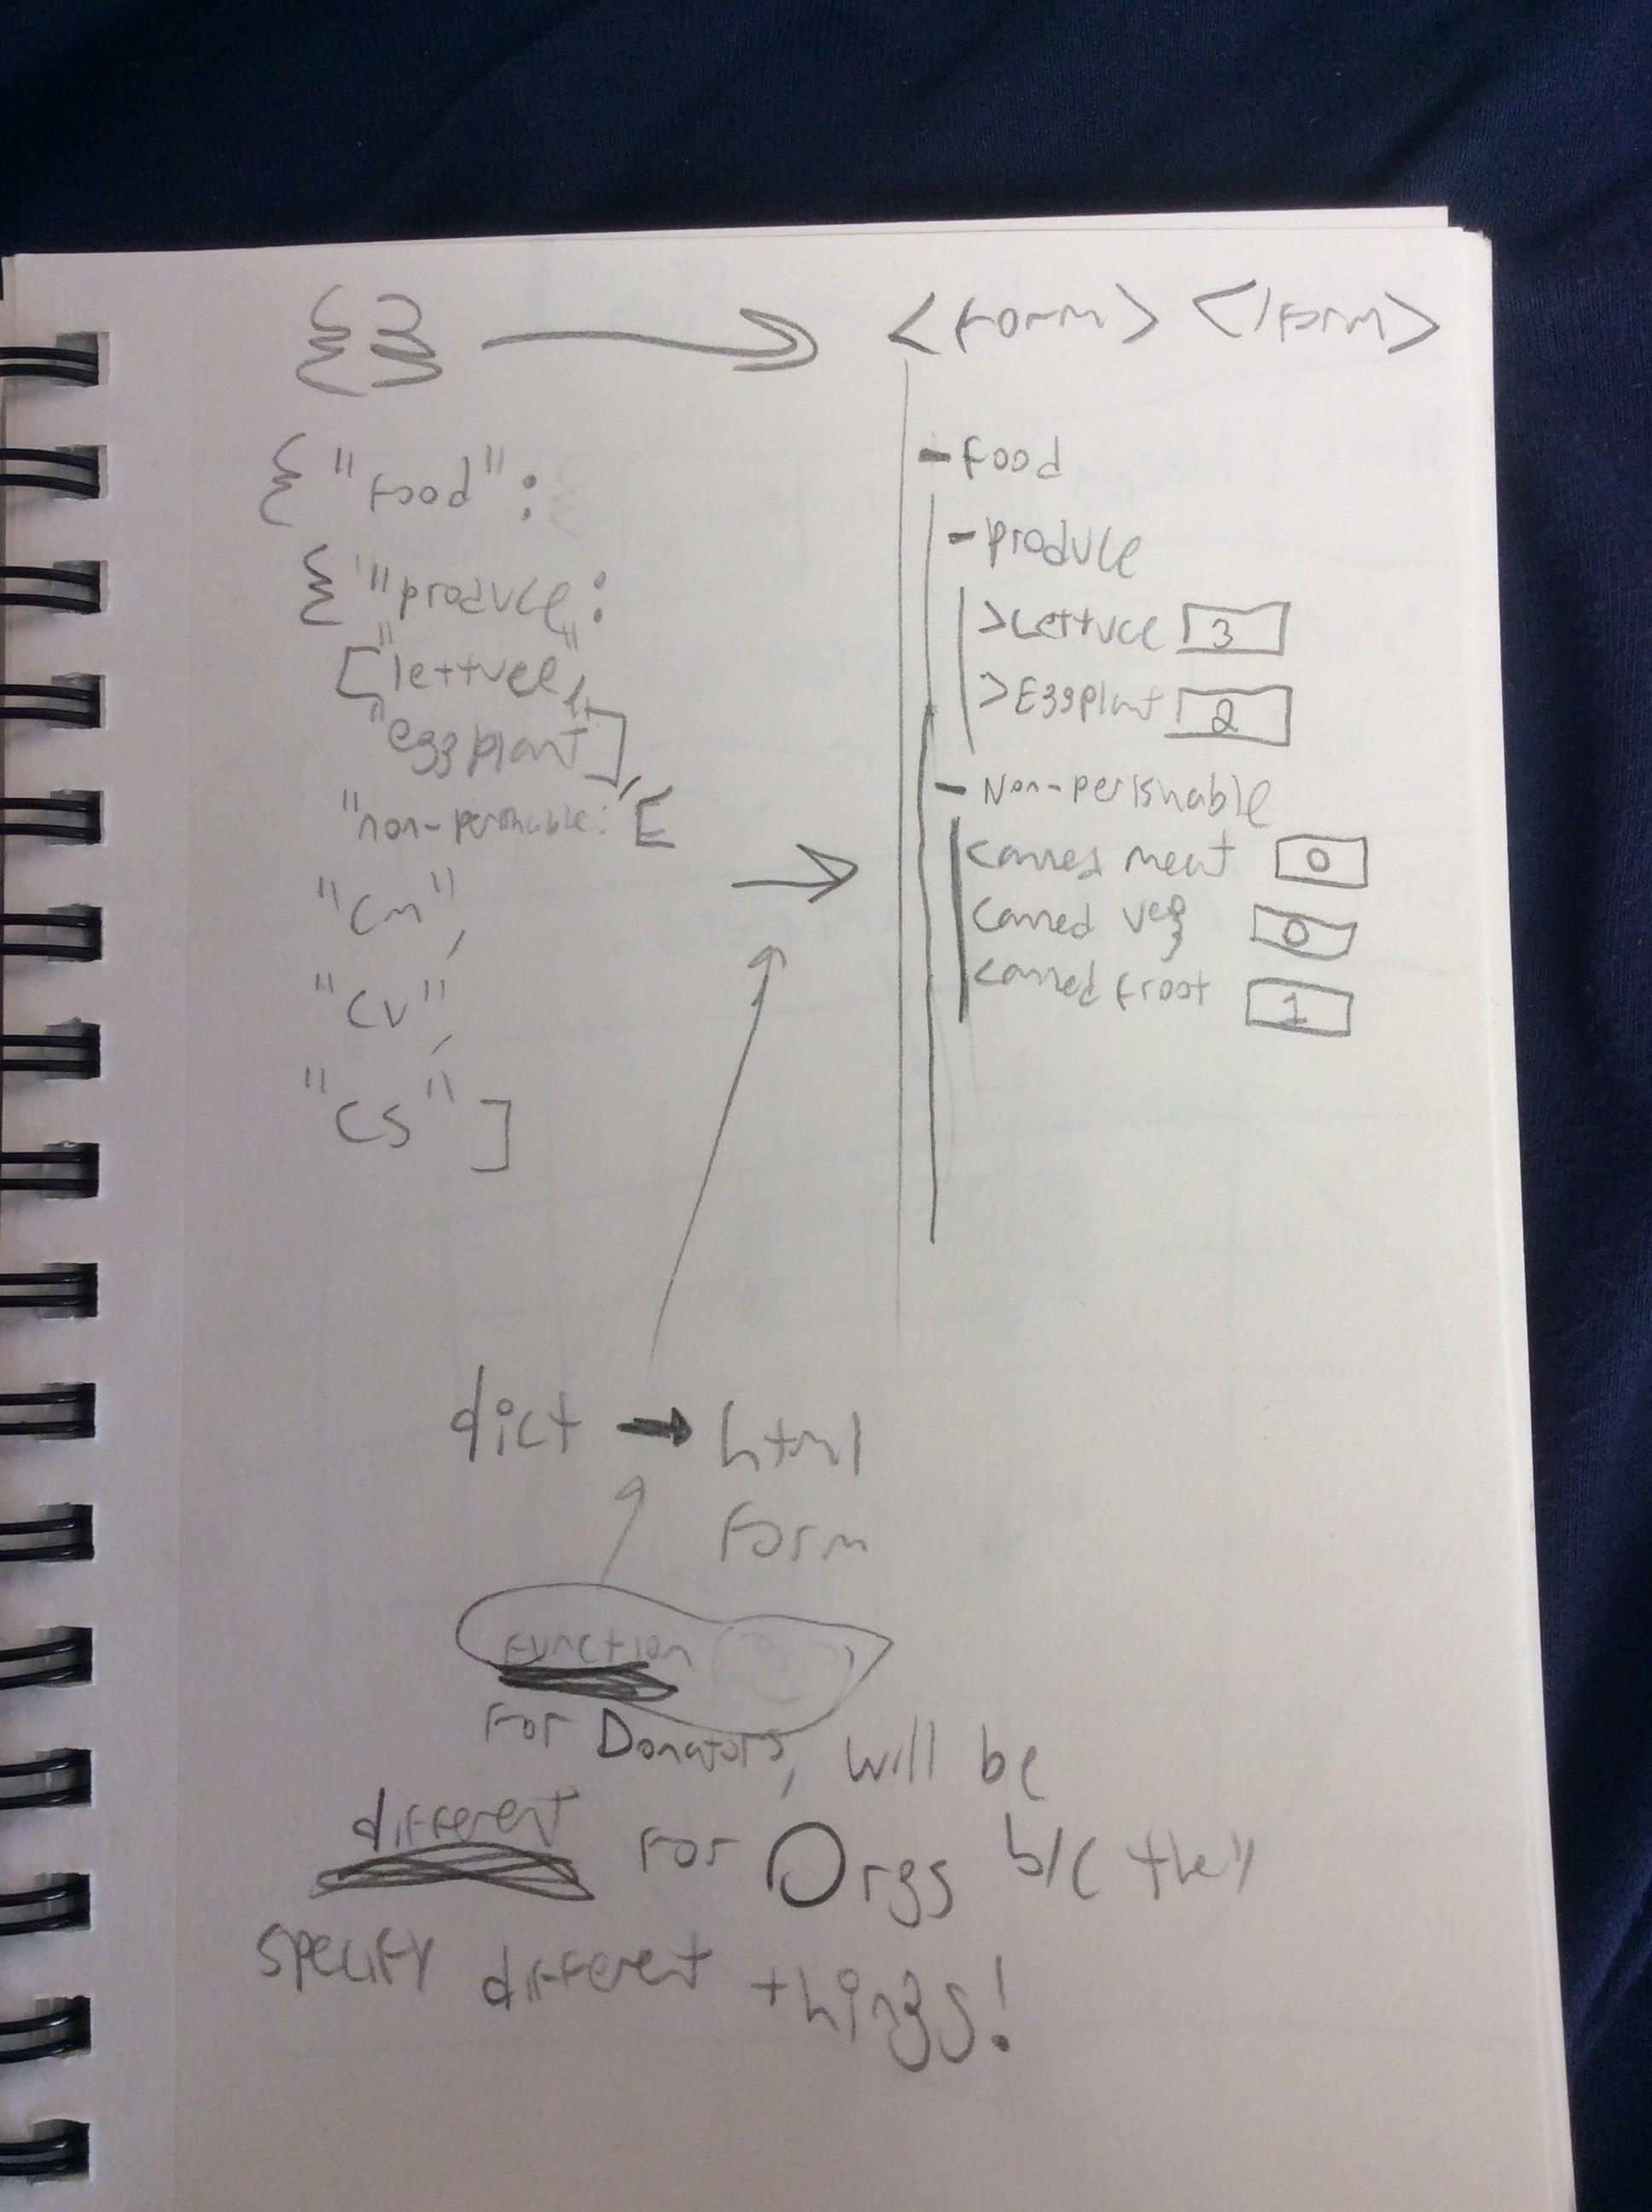 {} → <form> </form>
{ "food":
{ "produce":
["lettuce",
"eggplant"],
"non-perishable: [
"cm",
"cv",
"cs"]
- food
- produce
>Lettuce 3
>Eggplant 2
- Non-perishable
canned meat 0
canned veg 0
canned froot 1
dict → html
form
function
for Donators, will be
different for Orgs b/c they
specify different things!